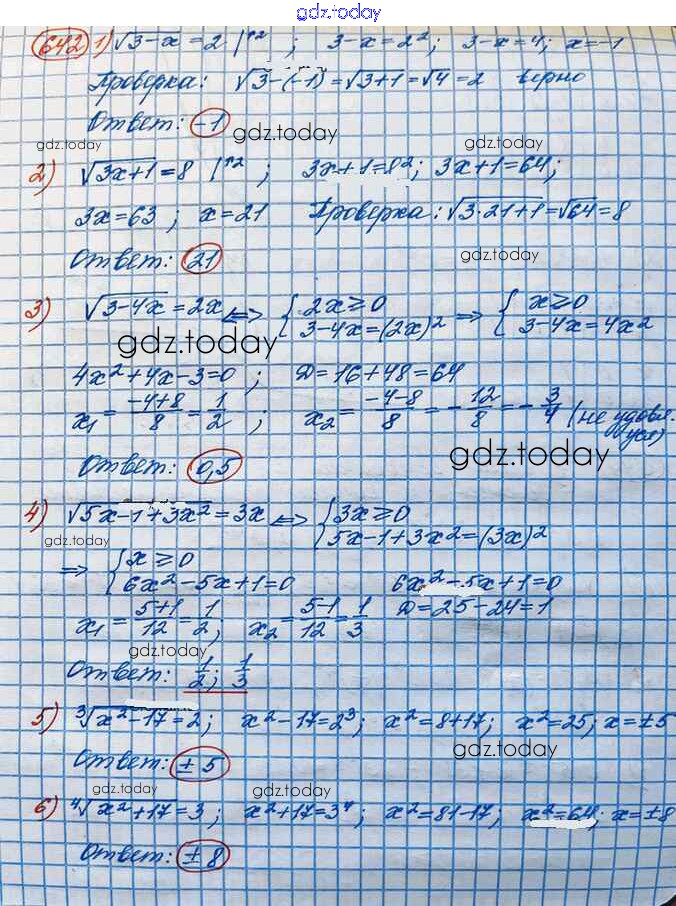 gdz.today
642 1) √3-x = 2 |↑2 ; 3-x=2²; 3-x=4; x=-1
Проверка: √3-(-1) = √3+1 = √4 = 2 верно
Ответ: -1
gdz.today gdz.today gdz.today
2) √3x+1 = 8 |↑2 ; 3x+1=8²; 3x+1=64;
3x=63 ; x=21 Проверка: √3·21+1 = √64 = 8
Ответ: 21
gdz.today
3) √3-4x = 2x ⇔ { 2x≥0 ⇒ { x≥0
3-4x=(2x)² 3-4x=4x²
gdz.today
4x²+4x-3=0 ; D=16+48=64
x₁ = -4+8/8 = 1/2 ; x₂ = -4-8/8 = -12/8 = -3/4 (не удовл.
уся)
Ответ: 0,5
gdz.today
4) √5x-1+3x² = 3x ⇔ { 3x≥0
5x-1+3x²=(3x)²
gdz.today
⇒ { x≥0
6x²-5x+1=0 6x²-5x+1=0
x₁ = 5+1/12 = 1/2; x₂ = 5-1/12 = 1/3 D=25-24=1
gdz.today
Ответ: 1/2; 1/3
5) ³√x²-17 = 2; x²-17=2³; x²=8+17; x²=25; x=±5
gdz.today
Ответ: ±5
gdz.today gdz.today
6) ⁴√x²+17 = 3; x²+17=3⁴; x²=81-17; x²=64; x=±8
Ответ: ±8
gdz.today